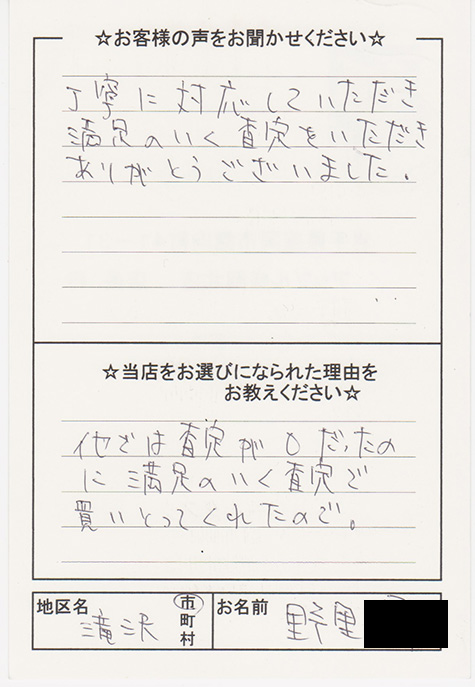 ☆お客様の声をお聞かせください☆
丁寧に対応していただき
満足のいく査定をいただき
ありがとうございました。
☆当店をお選びになられた理由を
お教えください☆
他では査定が0だったの
に満足のいく査定で
買いとってくれたので。
地区名 滝沢 市町村 お名前 野里